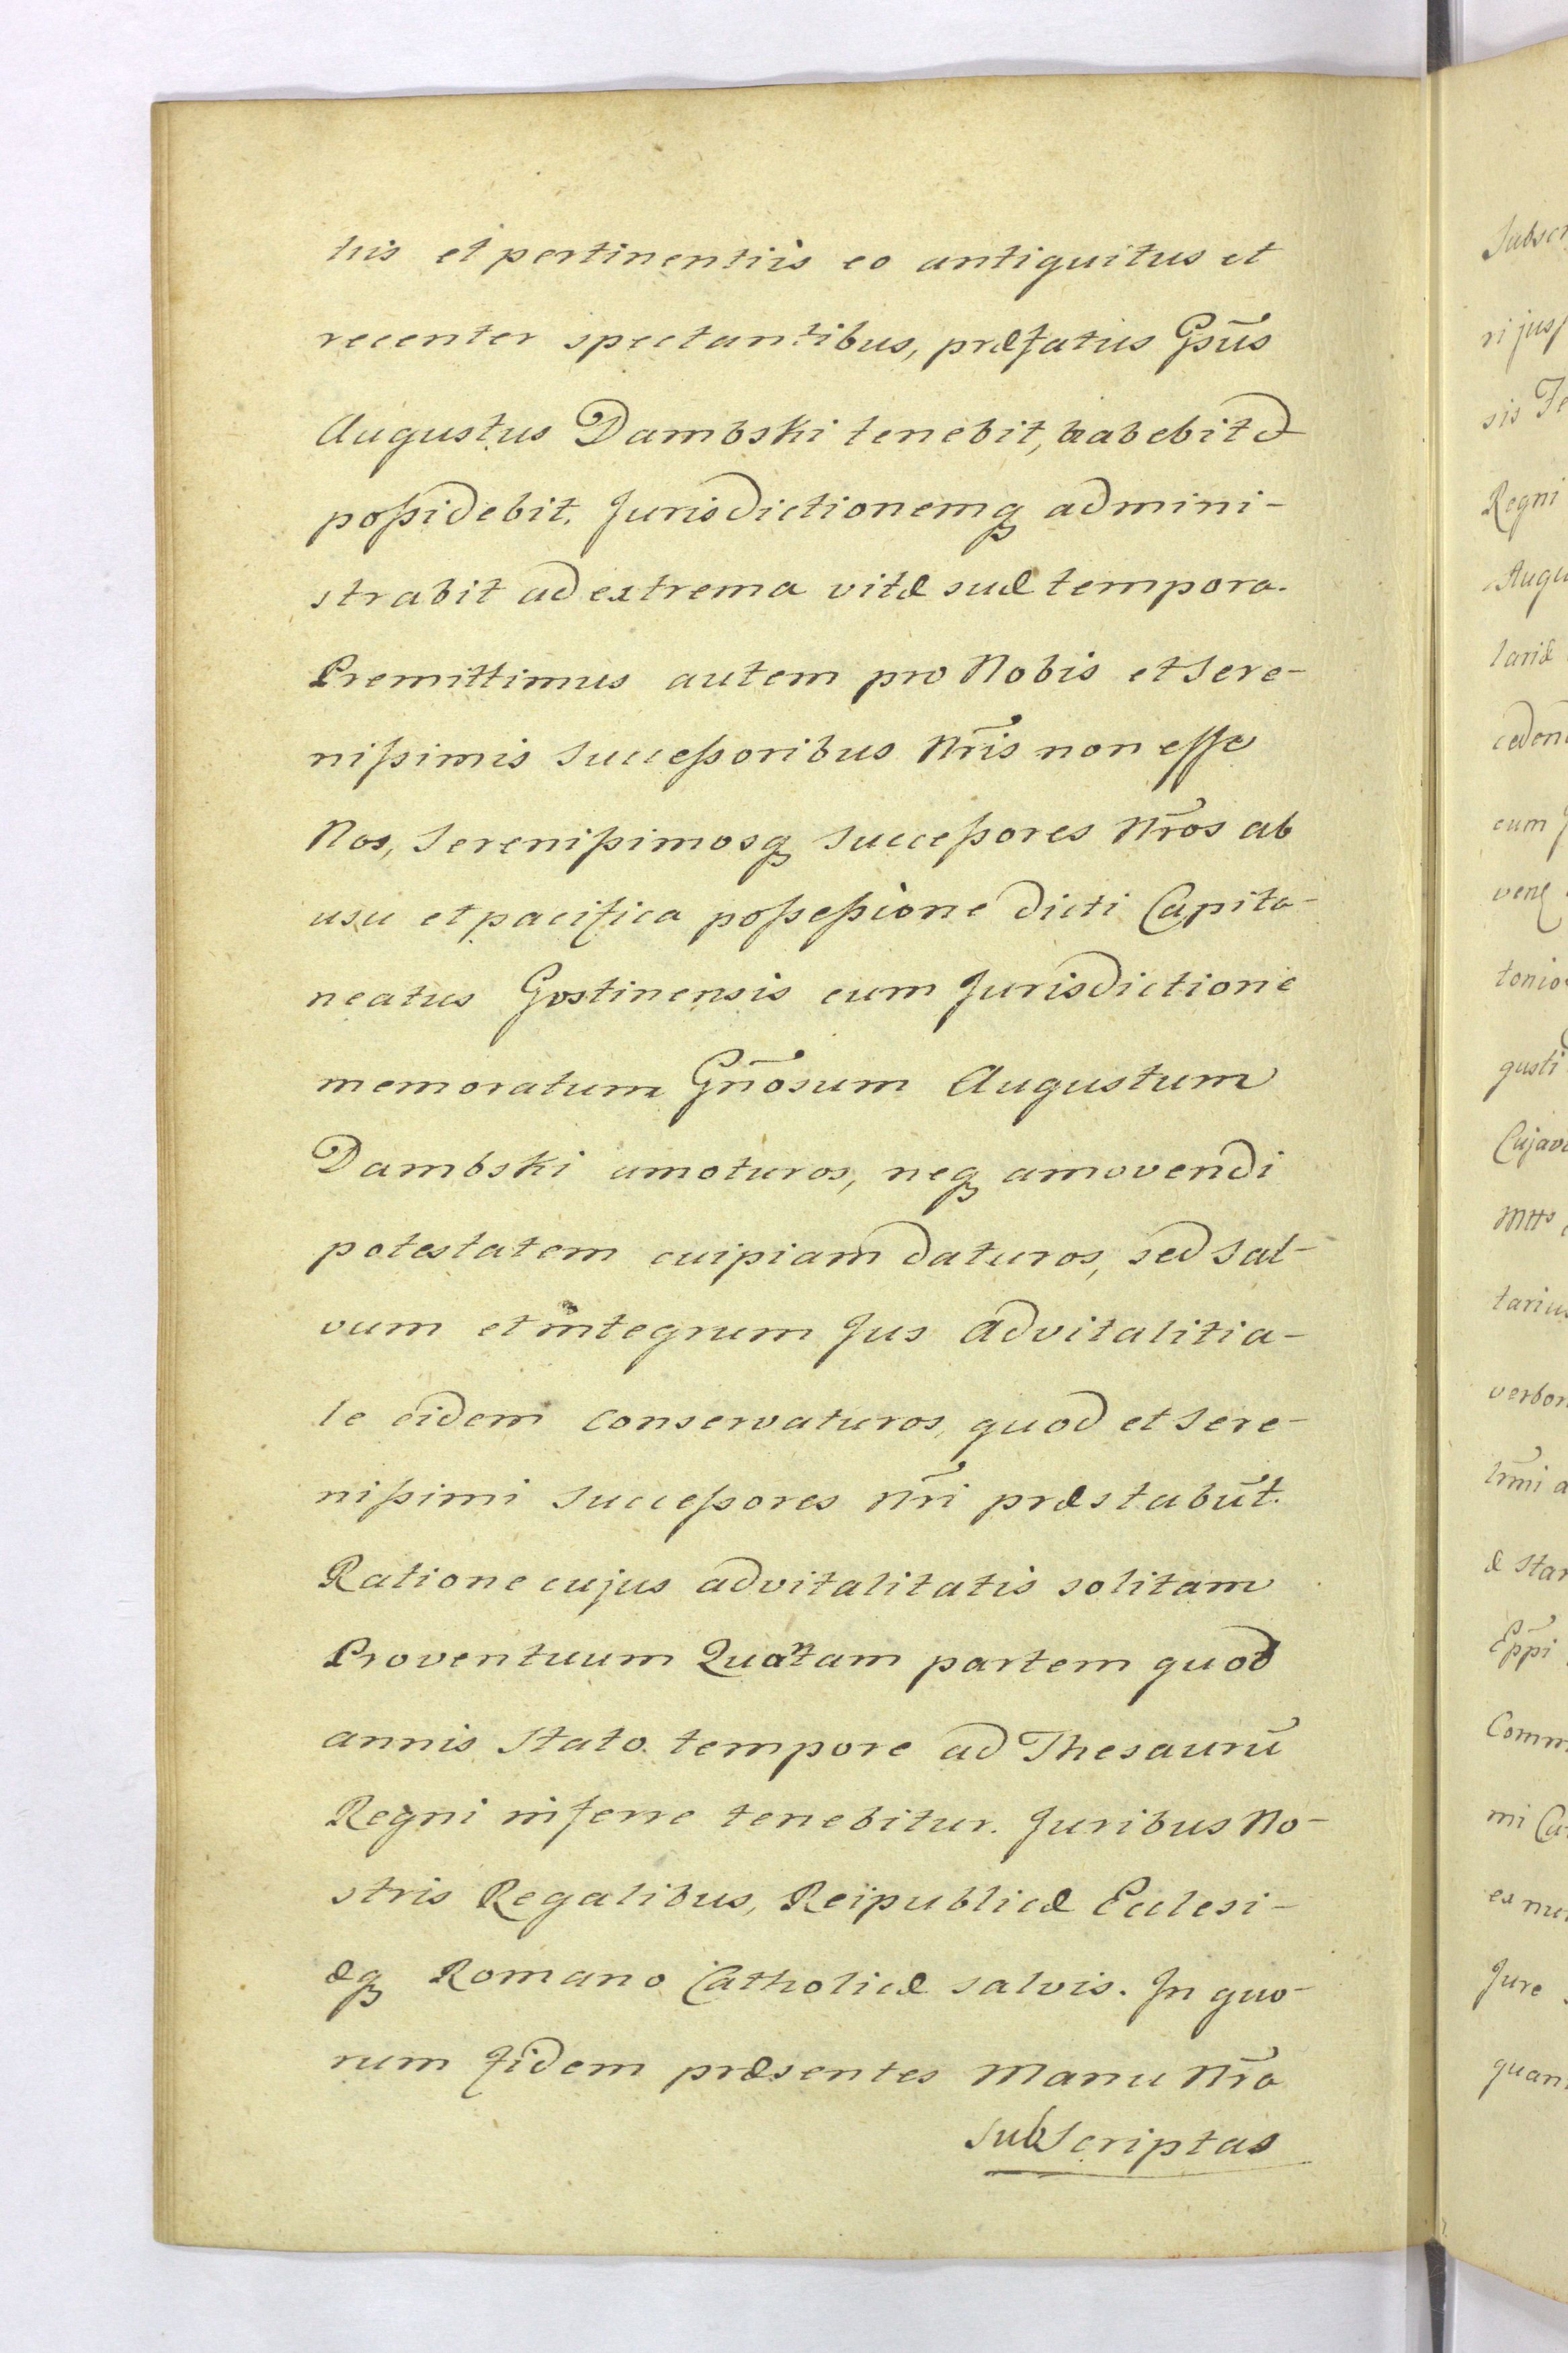 tris et pertinentiis eo antiquitus et
recenter spectantibus, præfatus Gsūs
Augustus Dambski tenebit, habebit et
poßidebit. Jurisdictionemq admini-
strabit ad extrema vitæ suæ tempora.
Premittimus autem pro Nobis et Sere-
nißimis Succeßoribus Nr̃is non esse
Nos, Serenißimosq Succeßores Nr̃os ab
usu et pacifica poßeßione dicti Capita-
neatus Gostinensis cum Jurisdictione
memoratum Gñosum Augustum
Dambski amoturos, neq amovendi
potestatem cuipiam daturos, sed Sal-
vum et integrum Jus advitalitia-
le eidem conservaturos, quod et Sere-
nißimi Succeßores Nr̃i præstabūt.
Ratione cujus advitalitatis solitam
Proventuum Quartam partem quod
annis Stato tempore ad Thesaurū
Regni inferre tenebitur. Juribus No-
stris Regalibus, Reipublicæ Ecclesi-
æq Romano Catholicæ salvis. In quo-
rum fidem præsentes Manu Nr̃a
subscriptas
Regni
eum
Jure